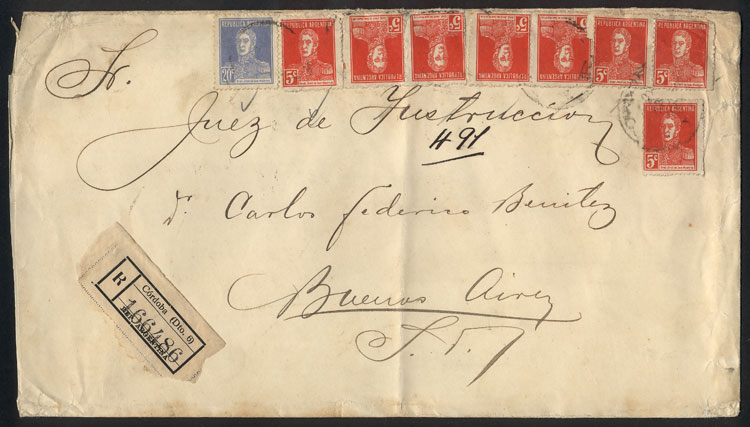 REPUBLICA ARGENTINA
20c
REPUBLICA ARGENTINA
5c
REPUBLICA ARGENTINA
5c
REPUBLICA ARGENTINA
5c
REPUBLICA ARGENTINA
5c
REPUBLICA ARGENTINA
5c
REPUBLICA ARGENTINA
5c
REPUBLICA ARGENTINA
5c
REPUBLICA ARGENTINA
5c
Sr.
Juez de Instruccion
491
Dr. Carlos Federico Benitez
Buenos Aires
R
Córdoba (Dto. 6)
166486
REP. ARGENTINA